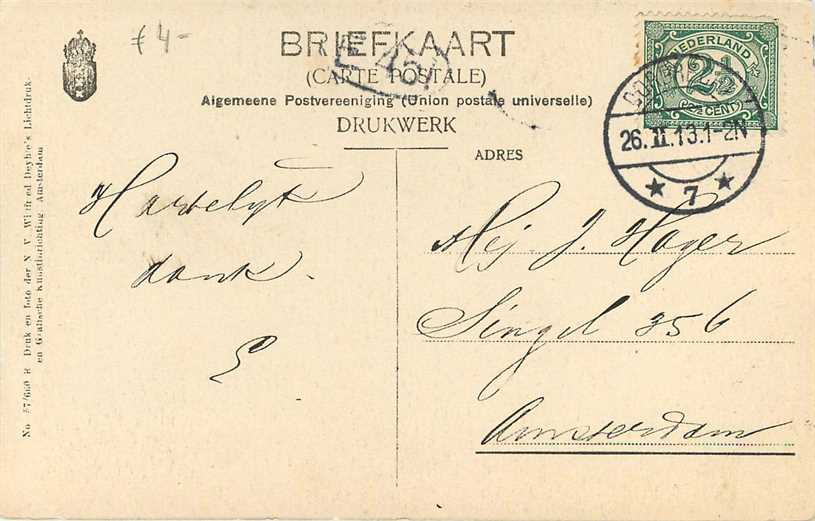 f 4-
BRIEFKAART
(CARTE POSTALE)
Algemeene Postvereeniging (Union postale universelle)
DRUKWERK
ADRES
NEDERLAND
2½
CENT
26.II.13.1-2N
7
Hartelijk
dank.
Mej J. Hoyer
Singel 356
Amsterdam
No Druk en foto der N. V. Wilfried Deyhle's Lichtdruk-
en Grafische Kunstinrichting Amsterdam